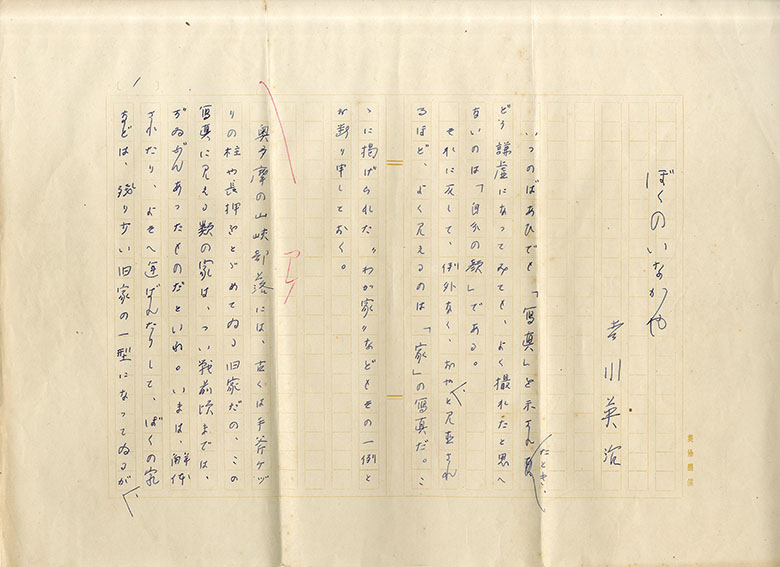 ぼくのいなか家
吉川英治
いつのばあひでも「寫真」を示されたとき、
どう謙虚になってみても、よく撮れたと思へ
ないのは「自分の顔」である。
それに反して、例外なく、おやと見直され
るほど、よく見えるのは「家」の寫真だ。こ
ゝに掲げられた“わが家”などもその一例と
お断り申しておく。
奥多摩の山峡部落には、古くは手斧ケヅ
りの柱や長押をとゞめてゐる旧家だの、この
寫真に見える類の家は、つい戦前頃までは、
ずゐぶんあったものだといわれ。いまは、解体
されたり、よそへ運ばれたりして、ぼくの家
などは、残り少い旧家の一型になってゐるが、